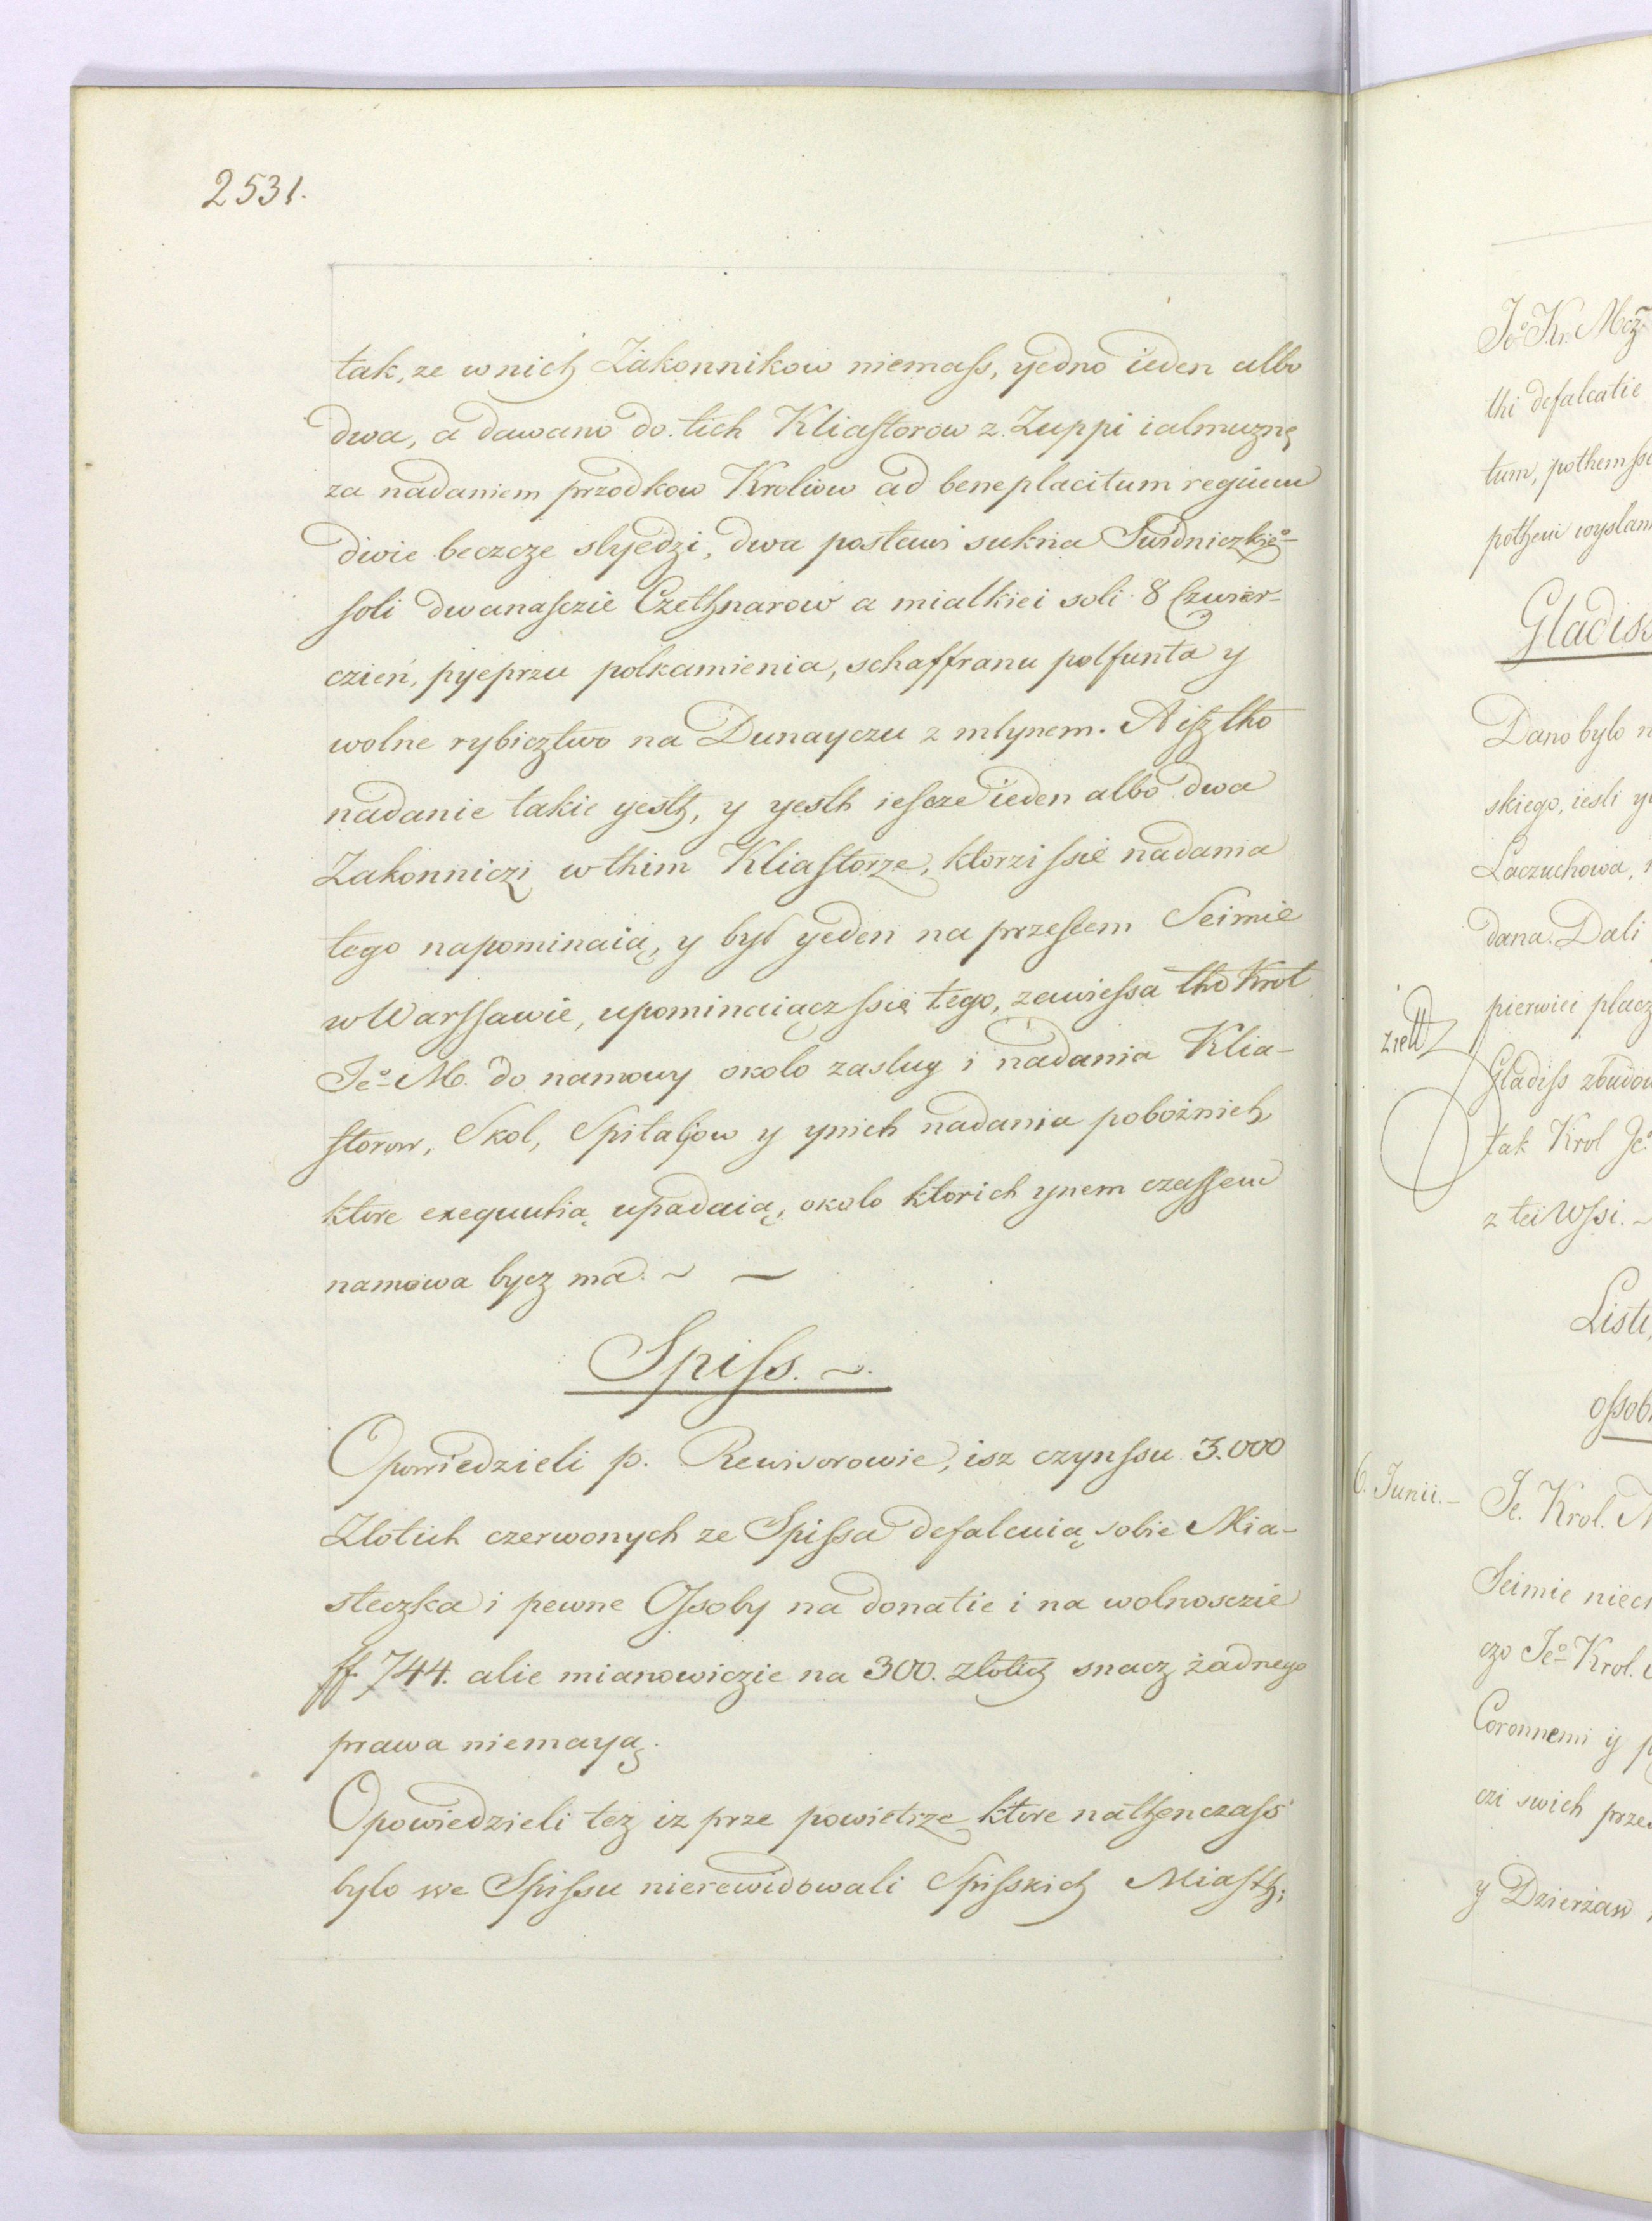 2531.
tak, ze w nich Zakonnikow niemass, yedno ieden albo
dwa, a dawano do tich Kliastorow z Zuppi ialmuznę
za nadaniem przodkow Kroliow ad beneplacitum regium
dwie beczcze slyedzi, dwa postawi sukna Swidniczkieº
soli dwanasczie Czethnarow a mialkiei soli 8 Czwier-
czien, pyeprzu polkamienia, schaffranu polfunta y
wolne rybicztwo na Dunayczu z mlynem. A isz tho
nadanie takie yesth, y yesth iescze ieden albo dwa
Zakonniczi w thim Kliastorze, ktorzi ssie nadania
tego napominaią, y był yeden na przeslem Seimie
w Warssawie, upominaiącz ssię tego, zawiessa tho Krol
Jeº M. do namowy okolo zaslug i nadania Klia-
storow, Skol, Spitaljow y ynich nadania pobożnich
ktore exequutią upadaią, okolo ktorich ynem czassem
namowa bycz ma. ~ ~
Spiss. ~.
Opowiedzieli p. Rewisorowie, isz czynssu 3.000
Zlotich czerwonych ze Spissa defalcuią sobie Mia-
steczka i pewne Ossoby na donatie i na wolnosczie
ff. 744. alie mianowiczie na 300. zlotich snacz żadnego
prawa niemayą.
Opowiedzieli też iz prze powietrze ktore nathenczass
bylo we Spissu nierewidowali Spisskich Miasth;
Jeº Kr. Mcz
thi defalcatie
tum, pothem
pothem wyslan
Gladiss
Dano bylo
skiego, iesli
Laczuchowa,
dana. Dali
pierwiei placz
Gladiss zbudow
tak Krol Jeº
z tei Wssi. ~
Listi,
ossob
6. Junii.- Je. Krol.
Seimie niec
czo Jeº Krol.
Coronnemi ÿ
czi swich prze
y Dzierżaw